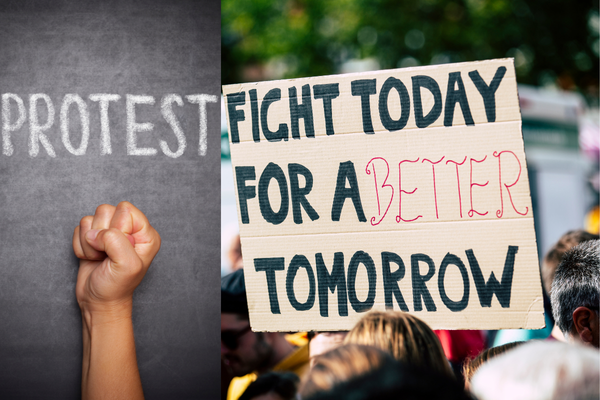 PROTEST
FIGHT TODAY
FOR A BETTER
TOMORROW